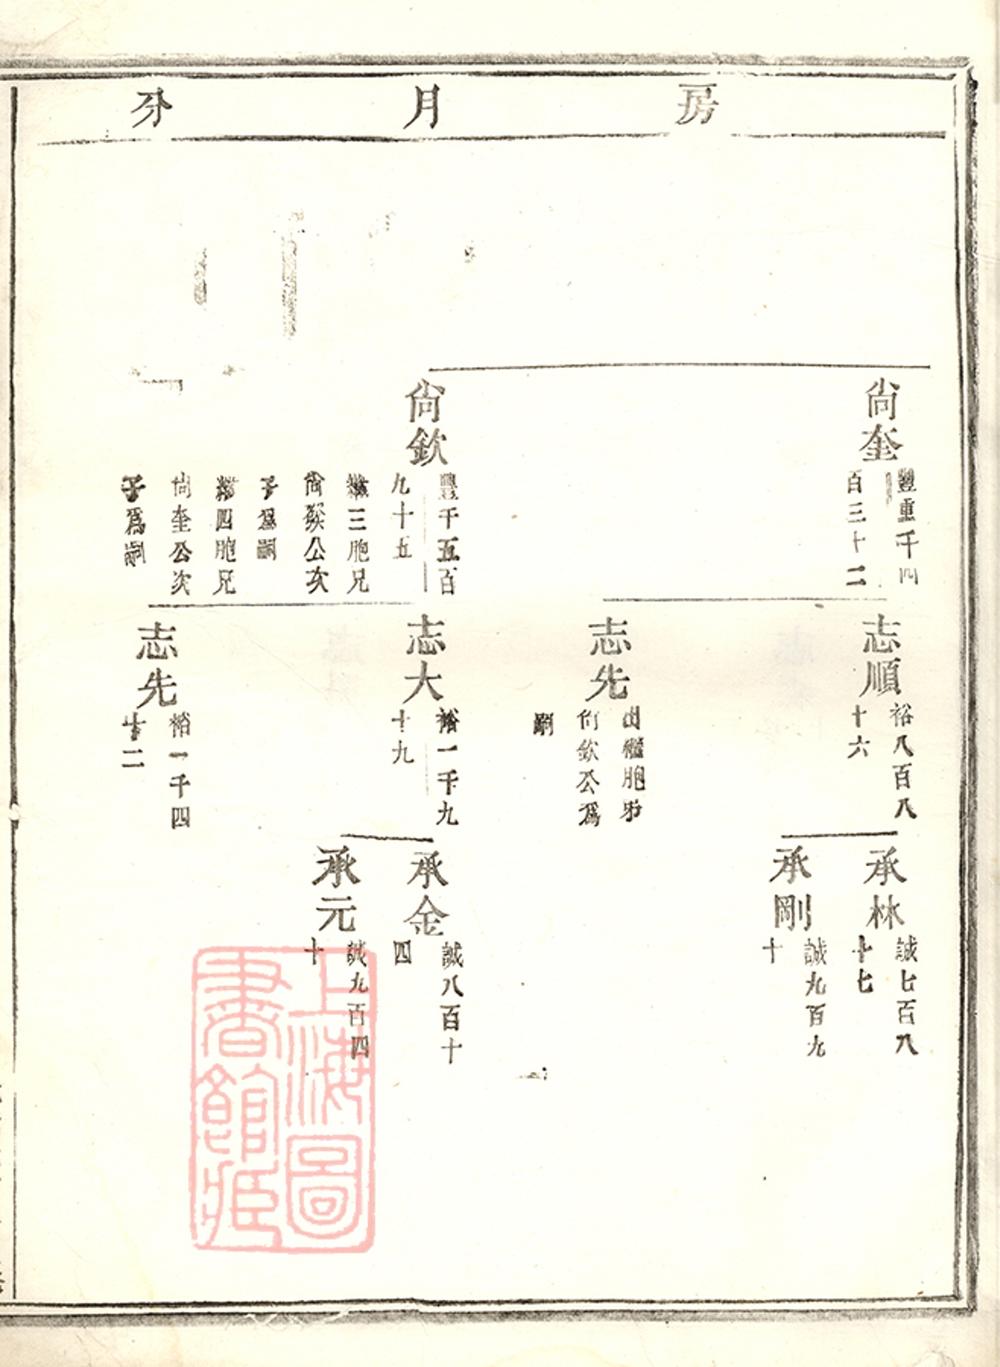 房月分
尚奎
豐重千四
百三十二
尚欽
豐千五百
九十五
繼三胞兄
尚公次
子爲嗣
繼四胞兄
尚奎公次
子爲嗣
志順
裕八百八
十六
志先
出繼胞弟
尚欽公爲
嗣
志大
裕一千九
十九
志先
裕一千四
十二
承林
誠七百八
十七
承剛
誠九百九
十
承金
誠八百十
四
承元
誠九百四
十
上海圖
書館臧